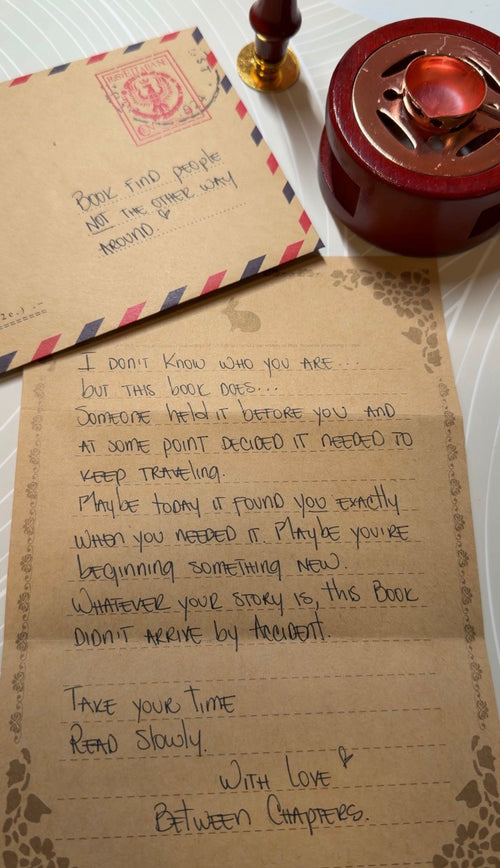 BOOK FIND PEOPLE
NOT THE OTHER WAY
AROUND.
I DON'T KNOW WHO YOU ARE...
but THIS book DOES...
SOMEONE held IT bEFORE you AND
AT SOME POINT DECIDED IT NEEDED TO
KEEP TRAVEling.
Maybe today IT Found you EXACTly
WHEN you NEEDED IT. Maybe you'RE
beginning SOMETHING NEW.
WHATEVER your STORY IS, this Book
DIDN'T ARRIVE by ACCIDENT.
TAKE your TIME
READ Slowly.
WITH LOVE
BETWEEN CHAPTERS.